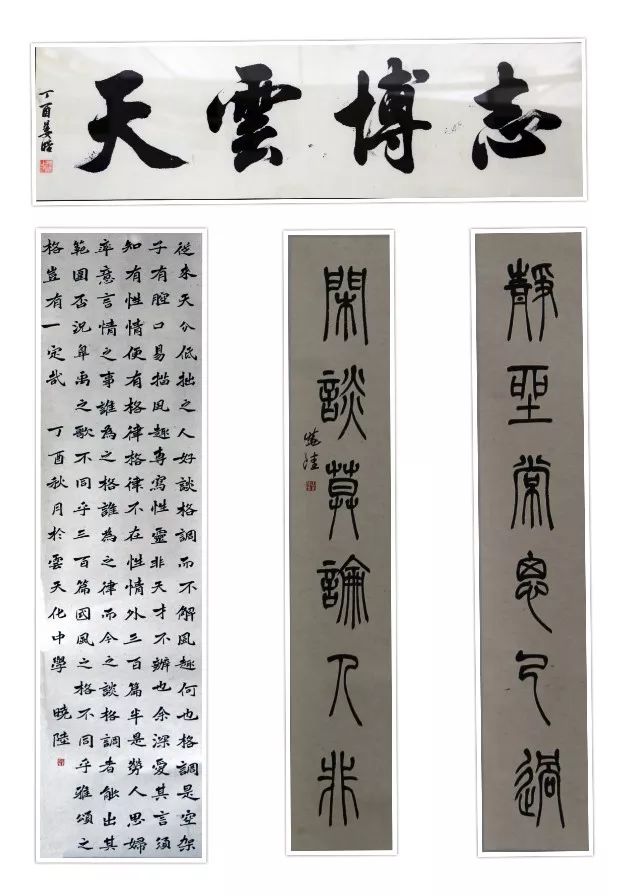 志博雲天
丁酉
靜坐常思己過
閑談莫論人非
曉陸
從來天分低拙之人好談格調而不解風趣何也格調是空架
子有腔口易描風趣專寫性靈非天才不辦也余深愛其言須
知有性情便有格律格律不在性情外三百篇半是勞人思婦
率意言情之事誰為之格誰為之律而今之談格調者能出其
範圍否況皐禹之歌不同乎三百篇國風之格不同乎雅頌之
格豈有一定哉 丁酉秋月於雲天化中學 曉陸